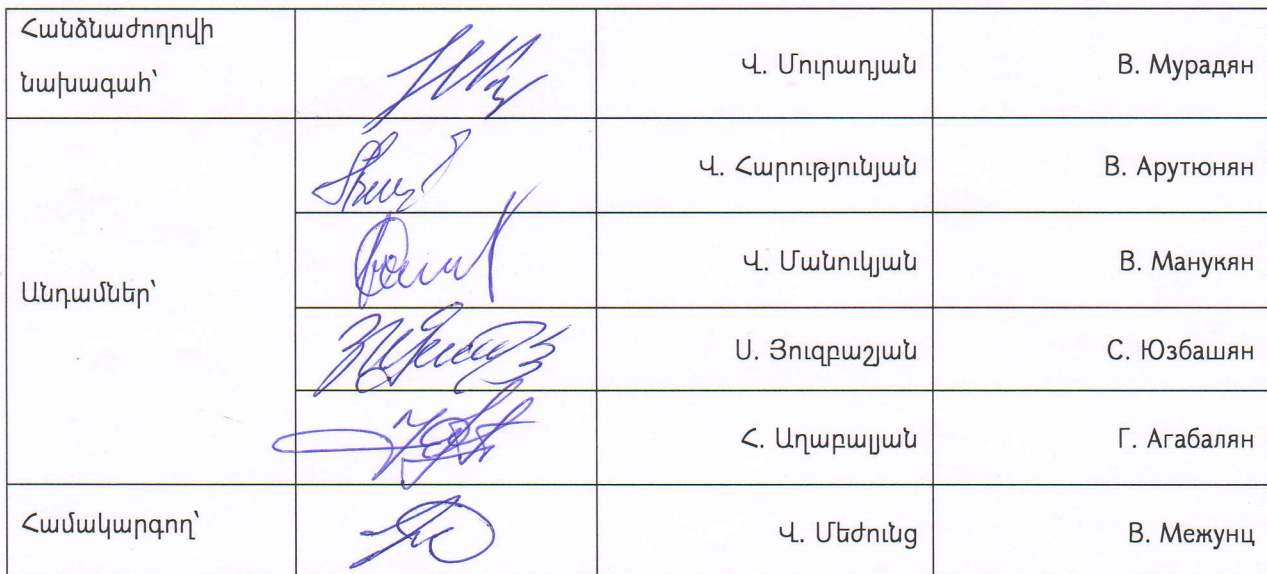 Հանձնաժողովի
նախագահ՝
Վ. Մուրադյան
В. Мурадян
Անդամներ՝
Վ. Հարությունյան
В. Арутюнян
Վ. Մանուկյան
В. Манукян
Ս. Յուզբաշյան
С. Юзбашян
Հ. Աղաբալյան
Г. Агабалян
Համակարգող՝
Վ. Մեժունց
В. Межунц